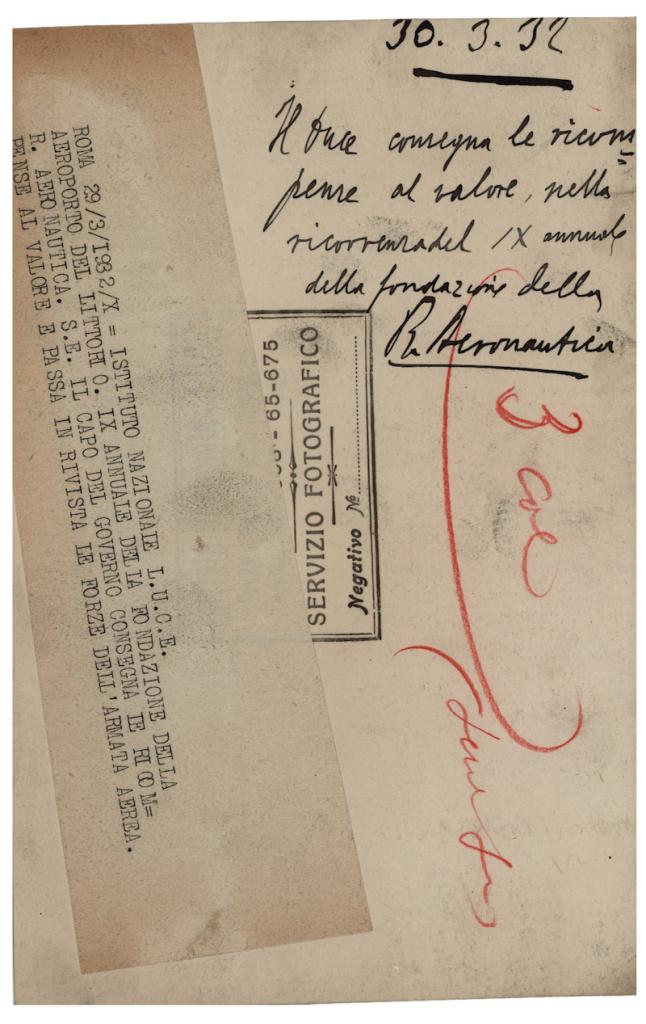 30.3.32
Il Duce consegna le ricom=
pense al valore, nella
ricorrenza del IX annuale
della fondazione della
R. Aeronautica
3 col
65-675
SERVIZIO FOTOGRAFICO
Negativo №
ROMA 29/3/1932/X = ISTITUTO NAZIONALE L.U.C.E.
AEROPORTO DEL LITTORIO. IX ANNUALE DELLA FONDAZIONE DELLA
R. AERONAUTICA. S.E. IL CAPO DEL GOVERNO CONSEGNA LE RICOM=
PENSE AL VALORE E PASSA IN RIVISTA LE FORZE DELL'ARMATA AEREA.